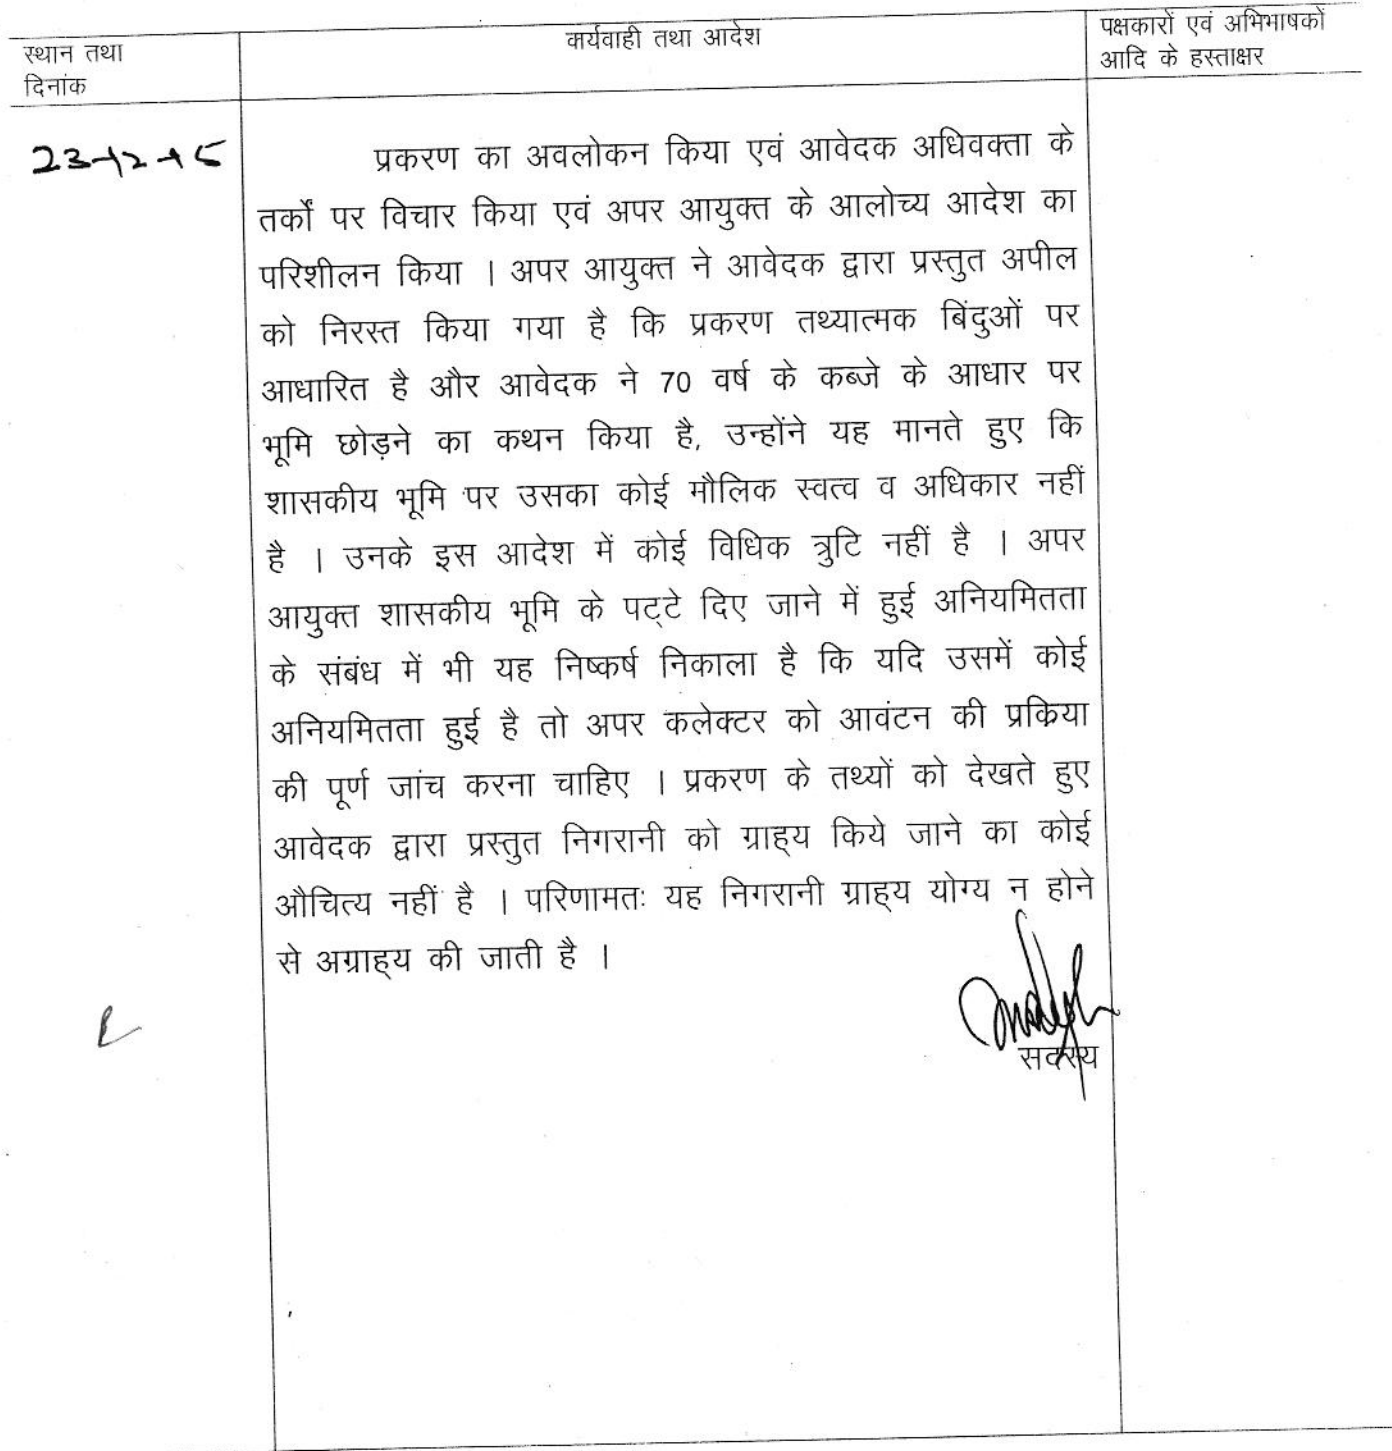 स्थान तथा
दिनांक
कार्यवाही तथा आदेश
पक्षकारों एवं अभिभाषकों
आदि के हस्ताक्षर
23-12-15
प्रकरण का अवलोकन किया एवं आवेदक अधिवक्ता के
तर्कों पर विचार किया एवं अपर आयुक्त के आलोच्य आदेश का
परिशीलन किया । अपर आयुक्त ने आवेदक द्वारा प्रस्तुत अपील
को निरस्त किया गया है कि प्रकरण तथ्यात्मक बिंदुओं पर
आधारित है और आवेदक ने 70 वर्ष के कब्जे के आधार पर
भूमि छोड़ने का कथन किया है, उन्होंने यह मानते हुए कि
शासकीय भूमि पर उसका कोई मौलिक स्वत्व व अधिकार नहीं
है । उनके इस आदेश में कोई विधिक त्रुटि नहीं है । अपर
आयुक्त शासकीय भूमि के पट्टे दिए जाने में हुई अनियमितता
के संबंध में भी यह निष्कर्ष निकाला है कि यदि उसमें कोई
अनियमितता हुई है तो अपर कलेक्टर को आवंटन की प्रकिया
की पूर्ण जांच करना चाहिए । प्रकरण के तथ्यों को देखते हुए
आवेदक द्वारा प्रस्तुत निगरानी को ग्राह्य किये जाने का कोई
औचित्य नहीं है । परिणामतः यह निगरानी ग्राह्य योग्य न होने
से अग्राह्य की जाती है ।
सदस्य